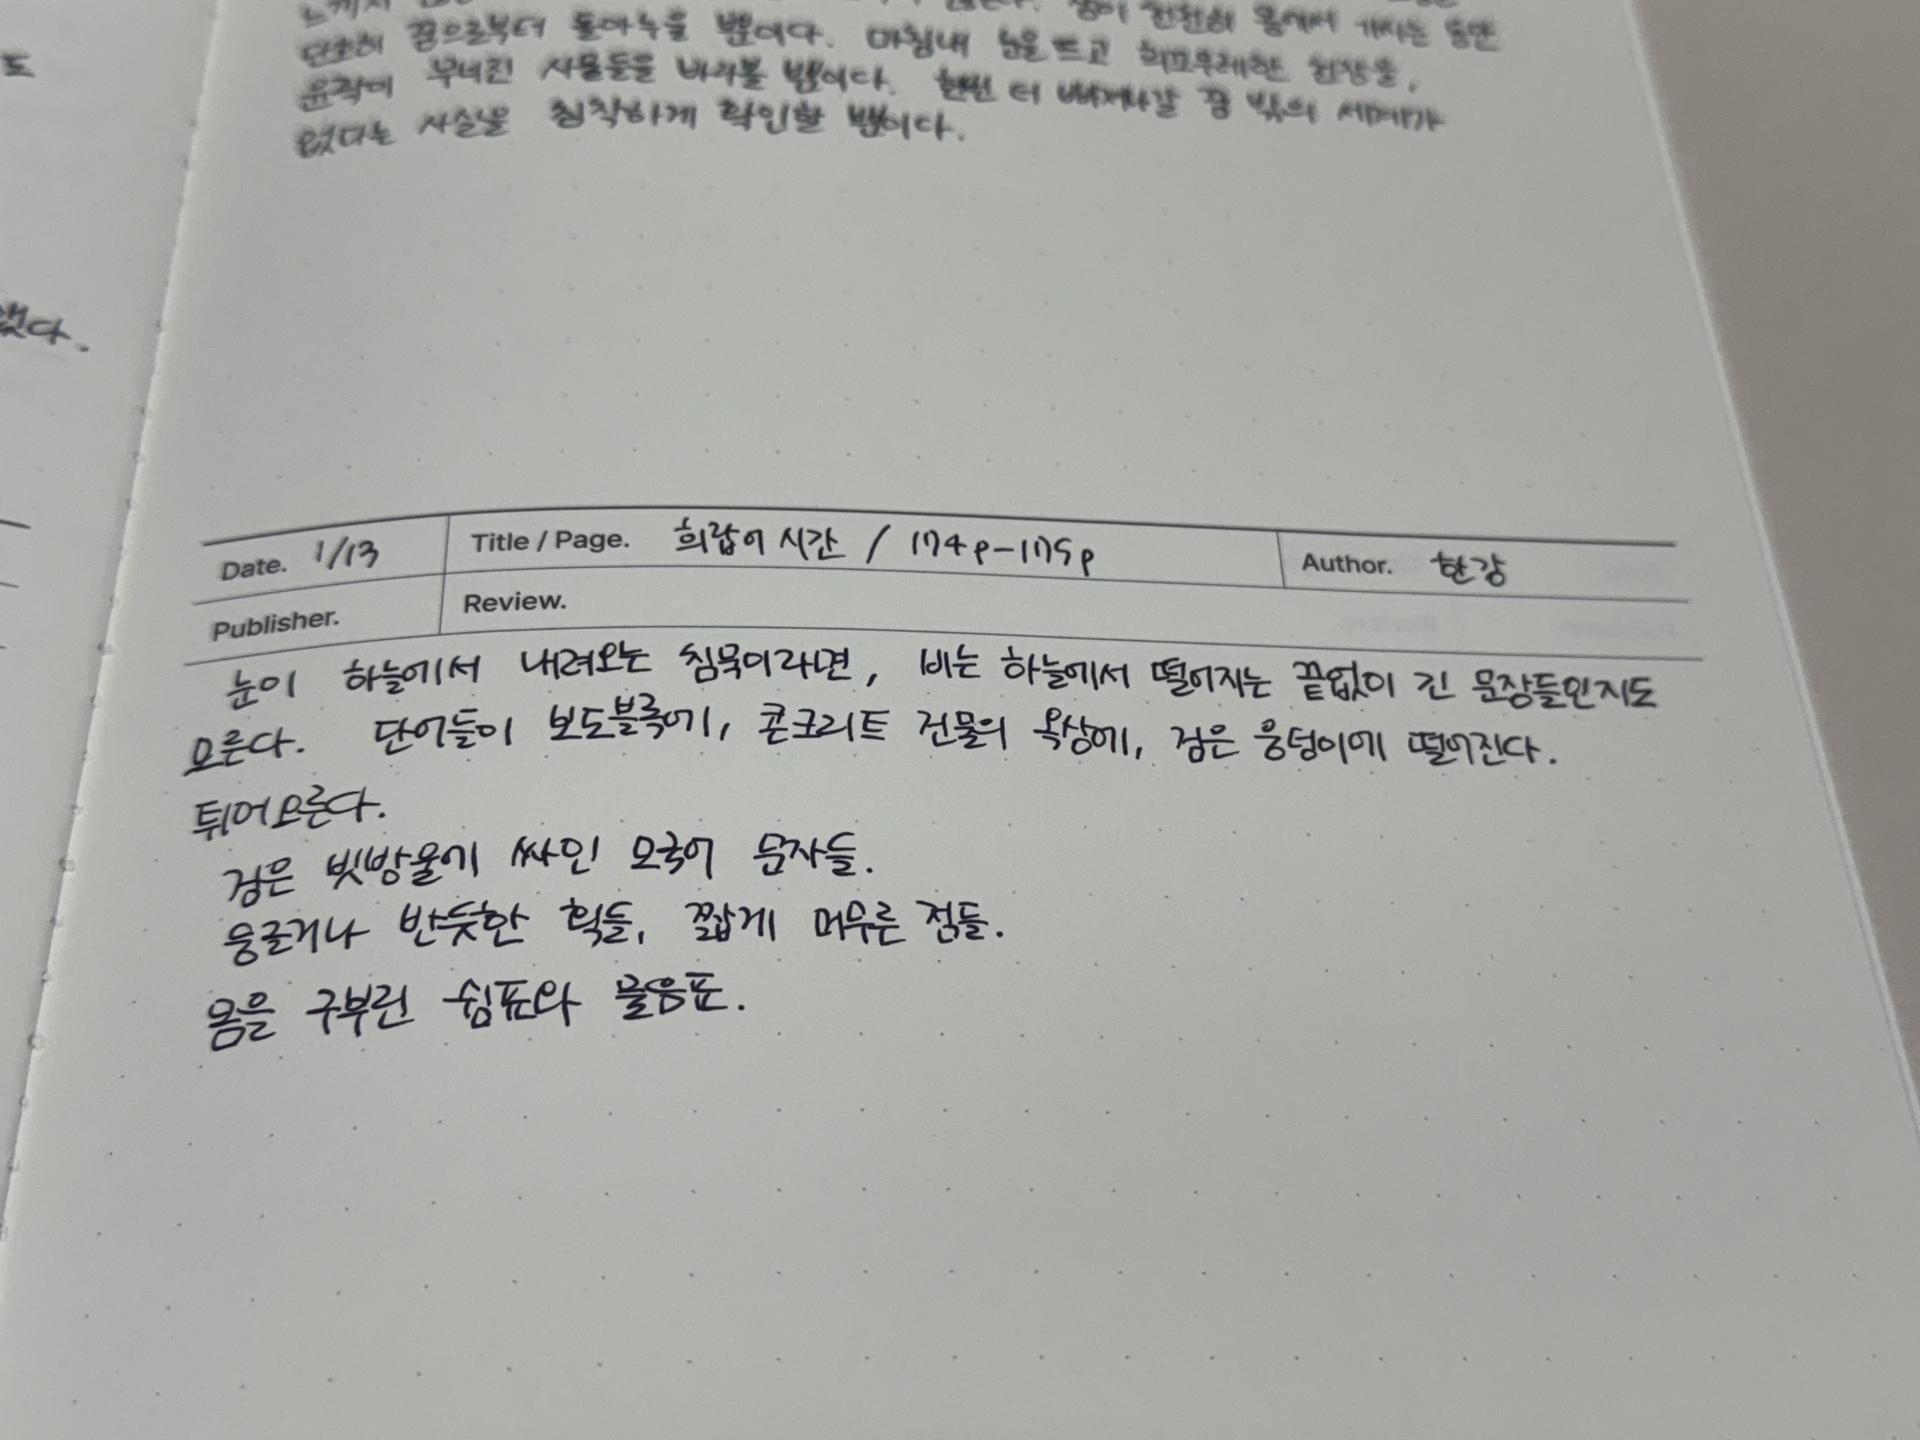 단호히 꿈으로부터 돌아누울 뿐이다. 마침내 눈을 뜨고 희끄무레한 천장을,
윤곽이 부너진 사물들을 바라볼 뿐이다. 한번 더 빠져나갈 꿈 밖의 세계가
없다는 사실을 침착하게 확인할 뿐이다.
도
했다.
Date. 1/13 Title / Page. 희랍어 시간 / 174p-175p Author. 한강
Publisher. Review.
눈이 하늘에서 내려오는 침묵이라면, 비는 하늘에서 떨어지는 끝없이 긴 문장들인지도
모른다. 단어들이 보도블록에, 콘크리트 건물의 옥상에, 검은 웅덩이에 떨어진다.
튀어오른다.
검은 빗방울에 싸인 모국어 문자들.
둥글거나 반듯한 획들, 짧게 머무른 점들.
몸을 구부린 쉼표와 물음표.